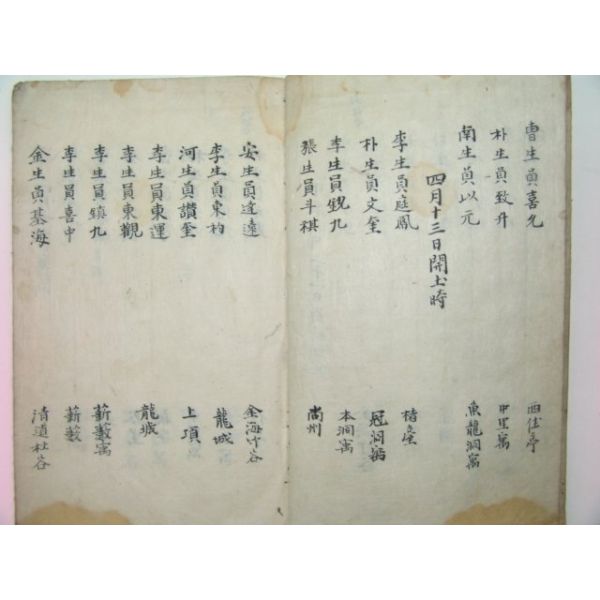 曺生員喜九 西佳亭
朴生員致升 中里寓
南生員以元 魚龍洞寓
四月十三日開土時
李生員庭鳳
朴生員文奎 冠洞寓
李生員銳九 本洞寓
張生員斗祺 尚州
安生員達遠 金海竹谷
李生員東杓 龍城
河生員讚奎 上項
李生員東運 龍城
李生員東觀
李生員鎮九 薪藪寓
李生員喜中 薪藪
金生員基海 清道杜谷